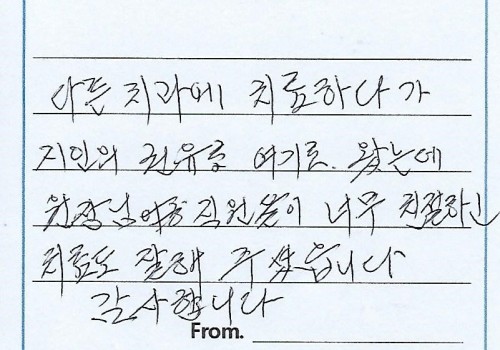 다른 치과에 치료하다가
지인의 권유로 여기로 왔는데
원장님 이하 직원분이 너무 친절하신
치료도 잘해 주셨습니다
감사합니다
From.